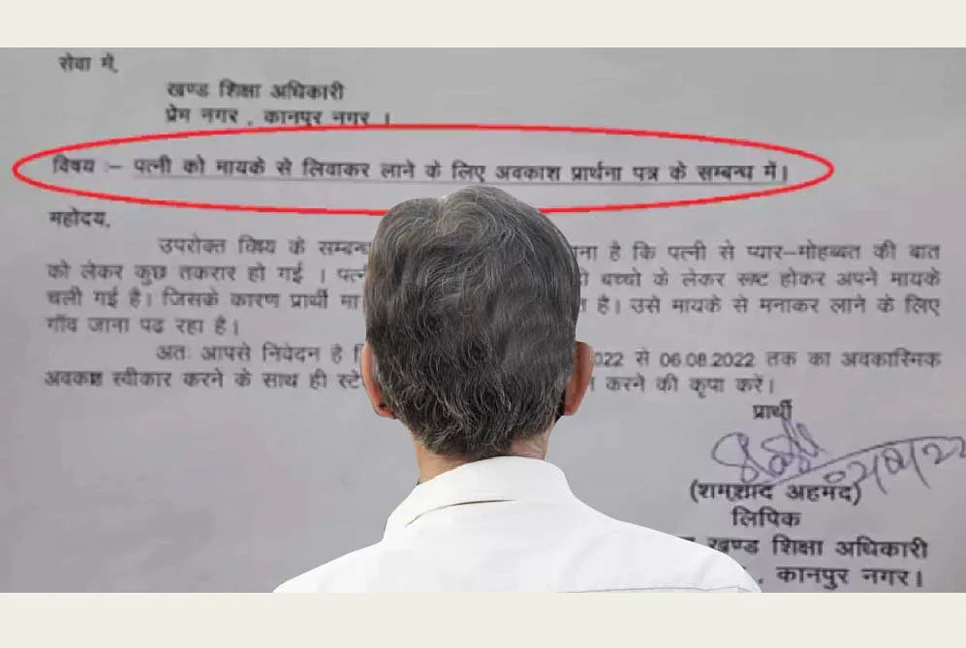 सेवा में,
खण्ड शिक्षा अधिकारी
प्रेम नगर, कानपुर नगर ।
विषय :– पत्नी को मायके से लिवाकर लाने के लिए अवकाश प्रार्थना पत्र के सम्बन्ध में।
महोदय,
उपरोक्त विषय के है कि पत्नी से प्यार–मोहब्बत की बात
को लेकर कुछ तकरार हो गई । बच्चो के लेकर रूष्ट होकर अपने मायके
चली गई है। जिसके कारण प्रार्थी है। उसे मायके से मनाकर लाने के लिए
गाँव जाना पढ रहा है।
अतः आपसे निवेदन है से 06.08.2022 तक का अवकास्मिक
अवकाश स्वीकार करने के साथ ही करने की कृपा करें।
प्रार्थी
(शमशाद अहमद)
लिपिक
खण्ड शिक्षा अधिकारी
, कानपुर नगर।